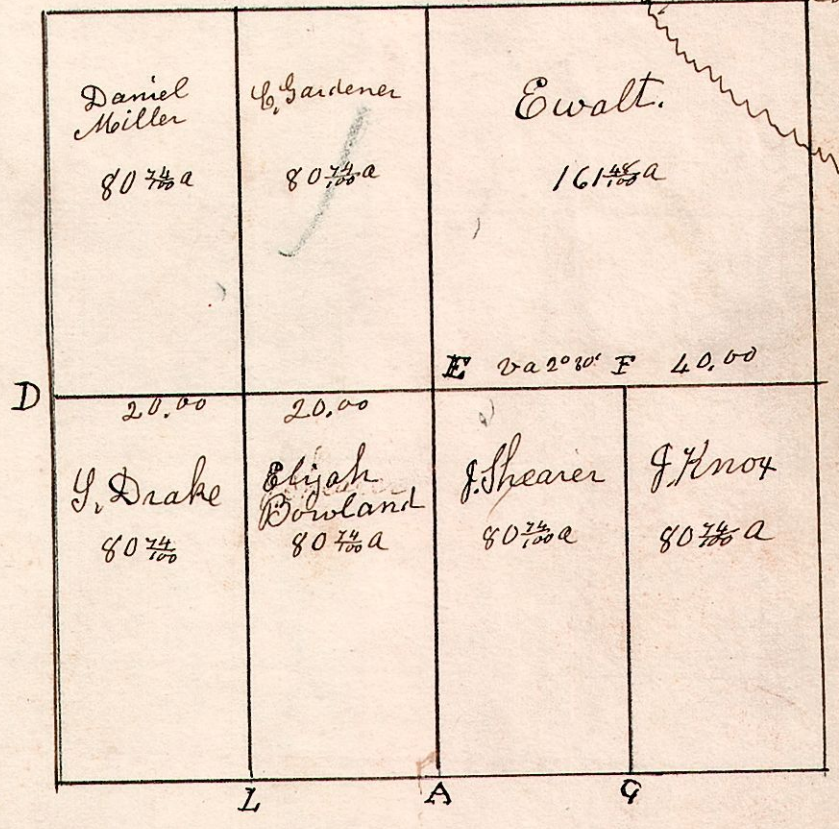 Daniel
Miller
80 74/100 a
C. Gardener
80 74/100 a
Ewalt.
161 48/100 a
D
E va 2° 30' F 40.00
20.00
20.00
S. Drake
80 74/100
Elijah
Bowland
80 74/100 a
J. Shearer
80 74/100 a
J. Knox
80 74/100 a
L
A
G